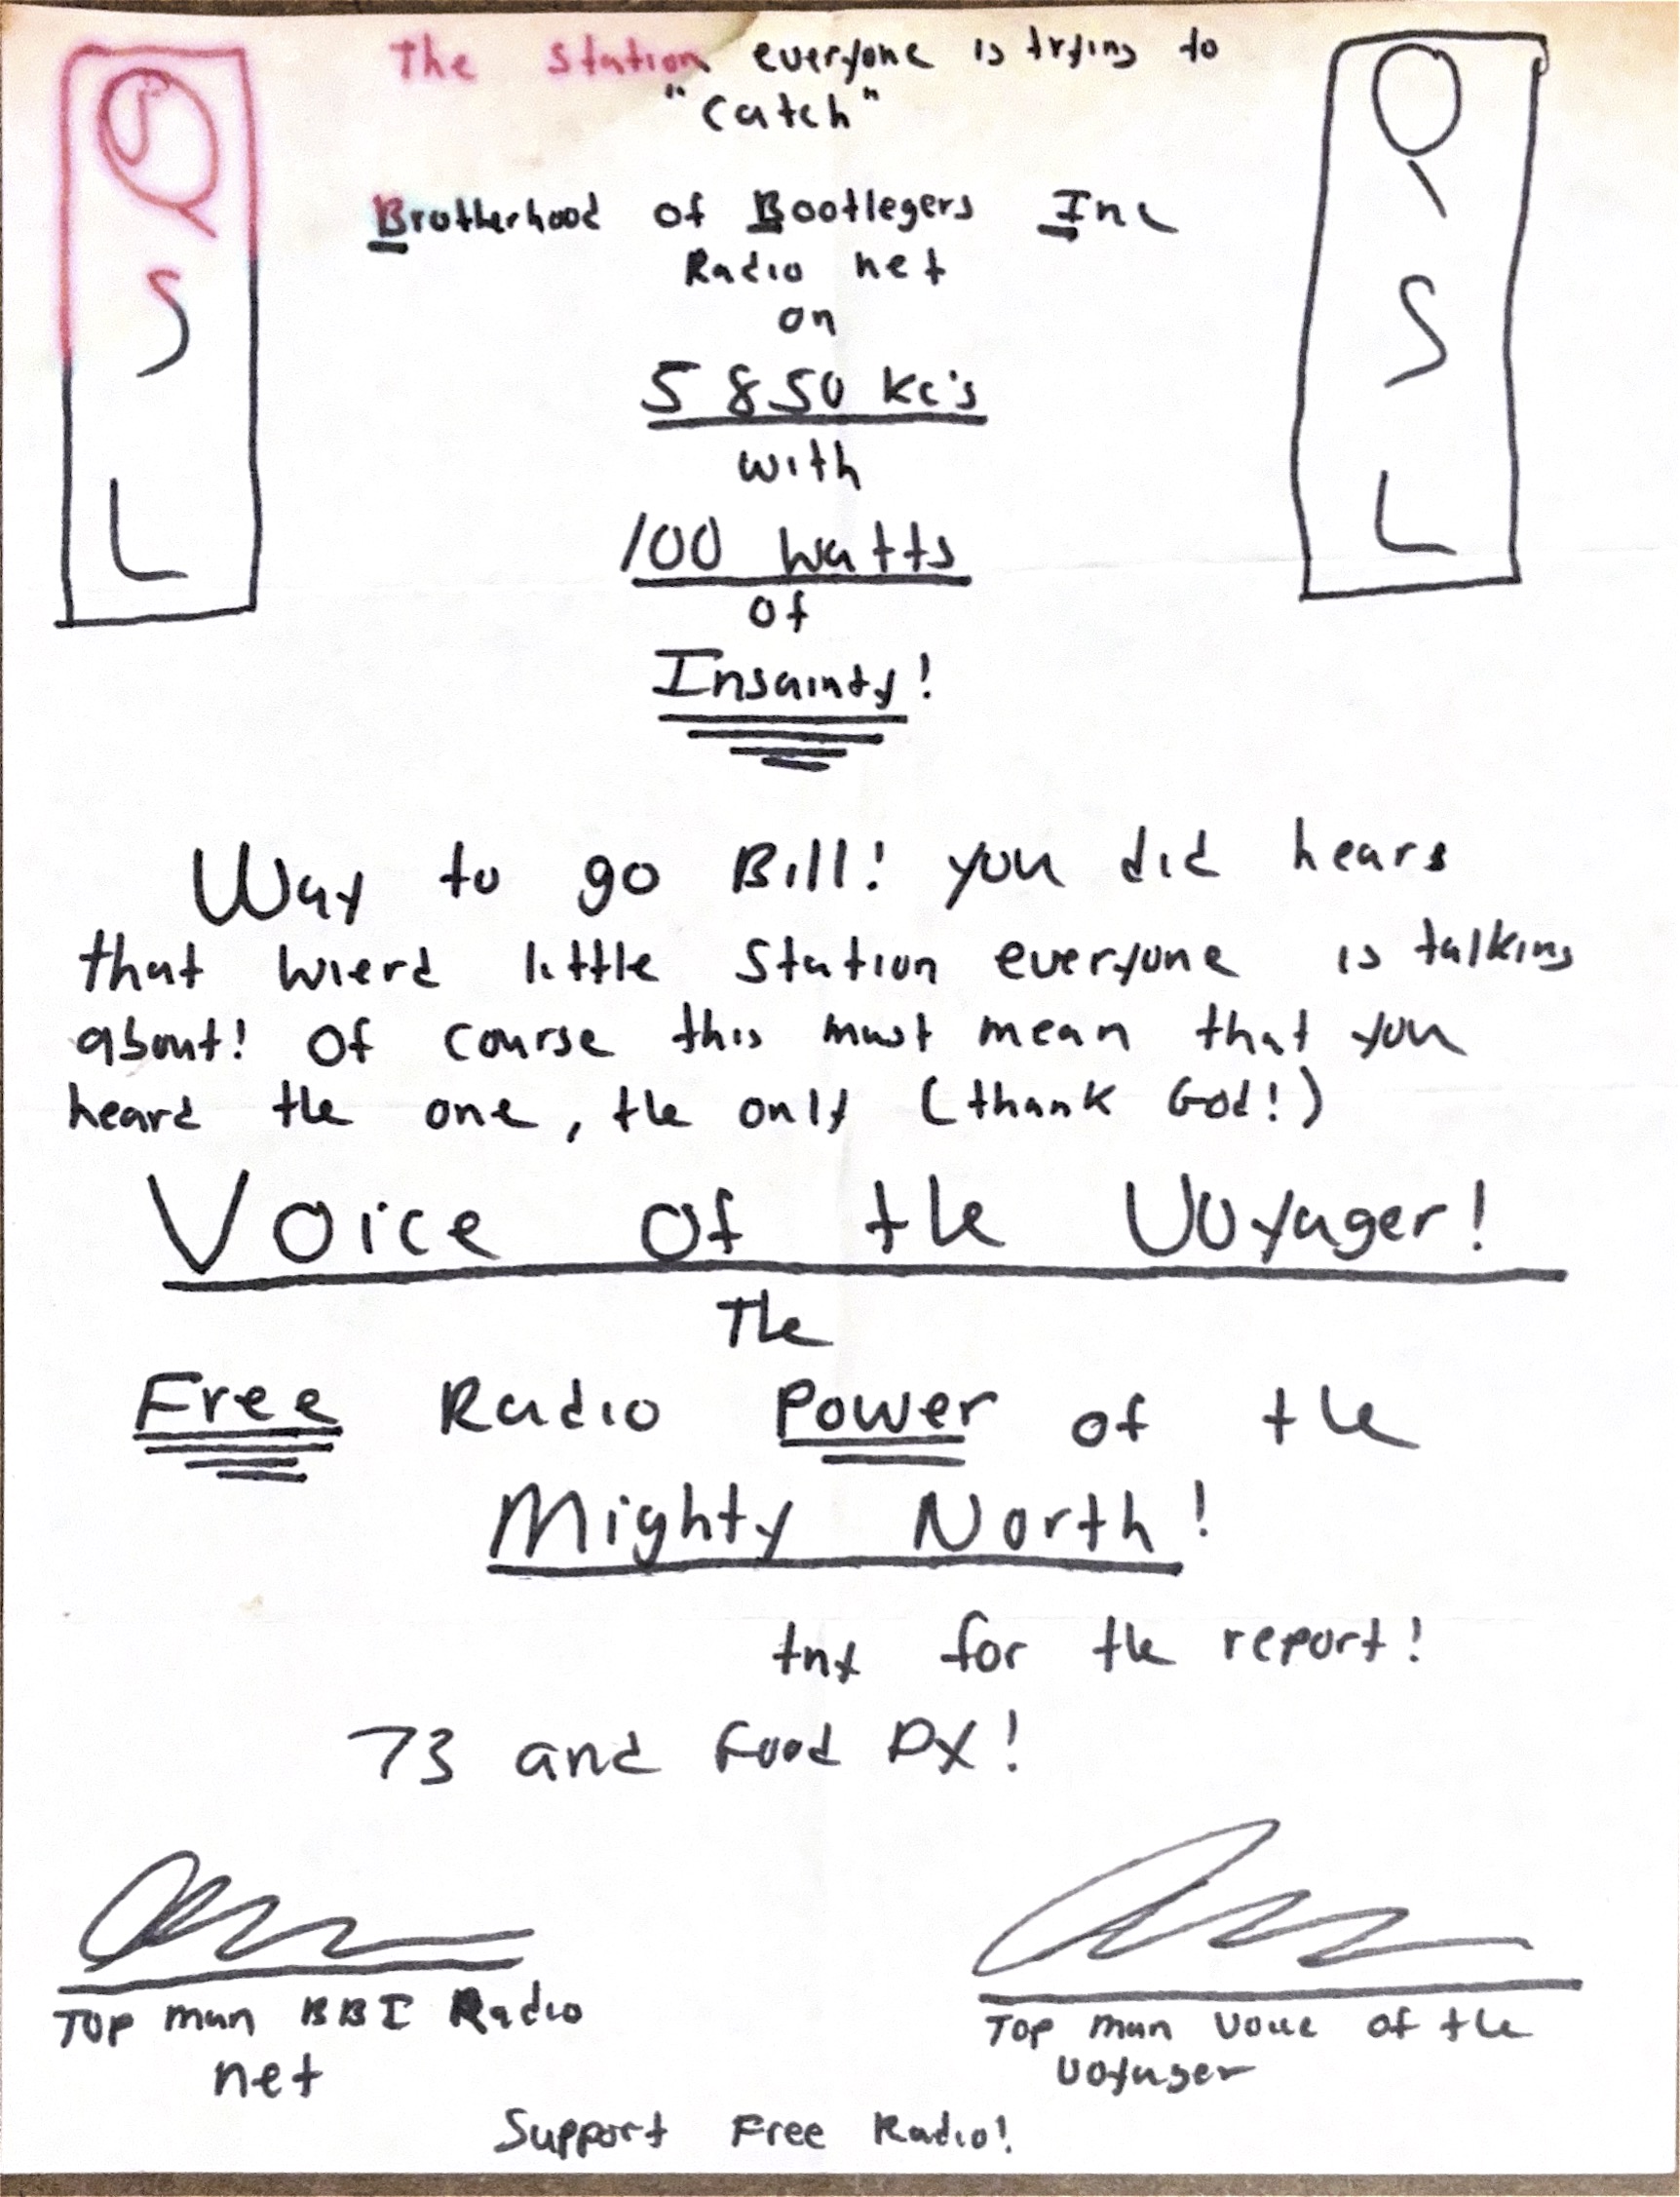 The Station everyone is trying to
"Catch"
Q
S
L
Q
S
L
Brotherhood of Bootlegers Inc
Radio net
on
5850 Kc's
with
100 watts
of
Insainty!
Way to go Bill! you did hears
that wierd little Station everyone is talking
about! Of course this must mean that you
heard the one, the only (thank God!)
Voice Of the Voyager!
The
Free Radio Power of the
Mighty North!
tnx for the report!
73 and Good DX!
Top man BBI Radio
net
Top man Voice of the
Voyager
Support Free Radio!